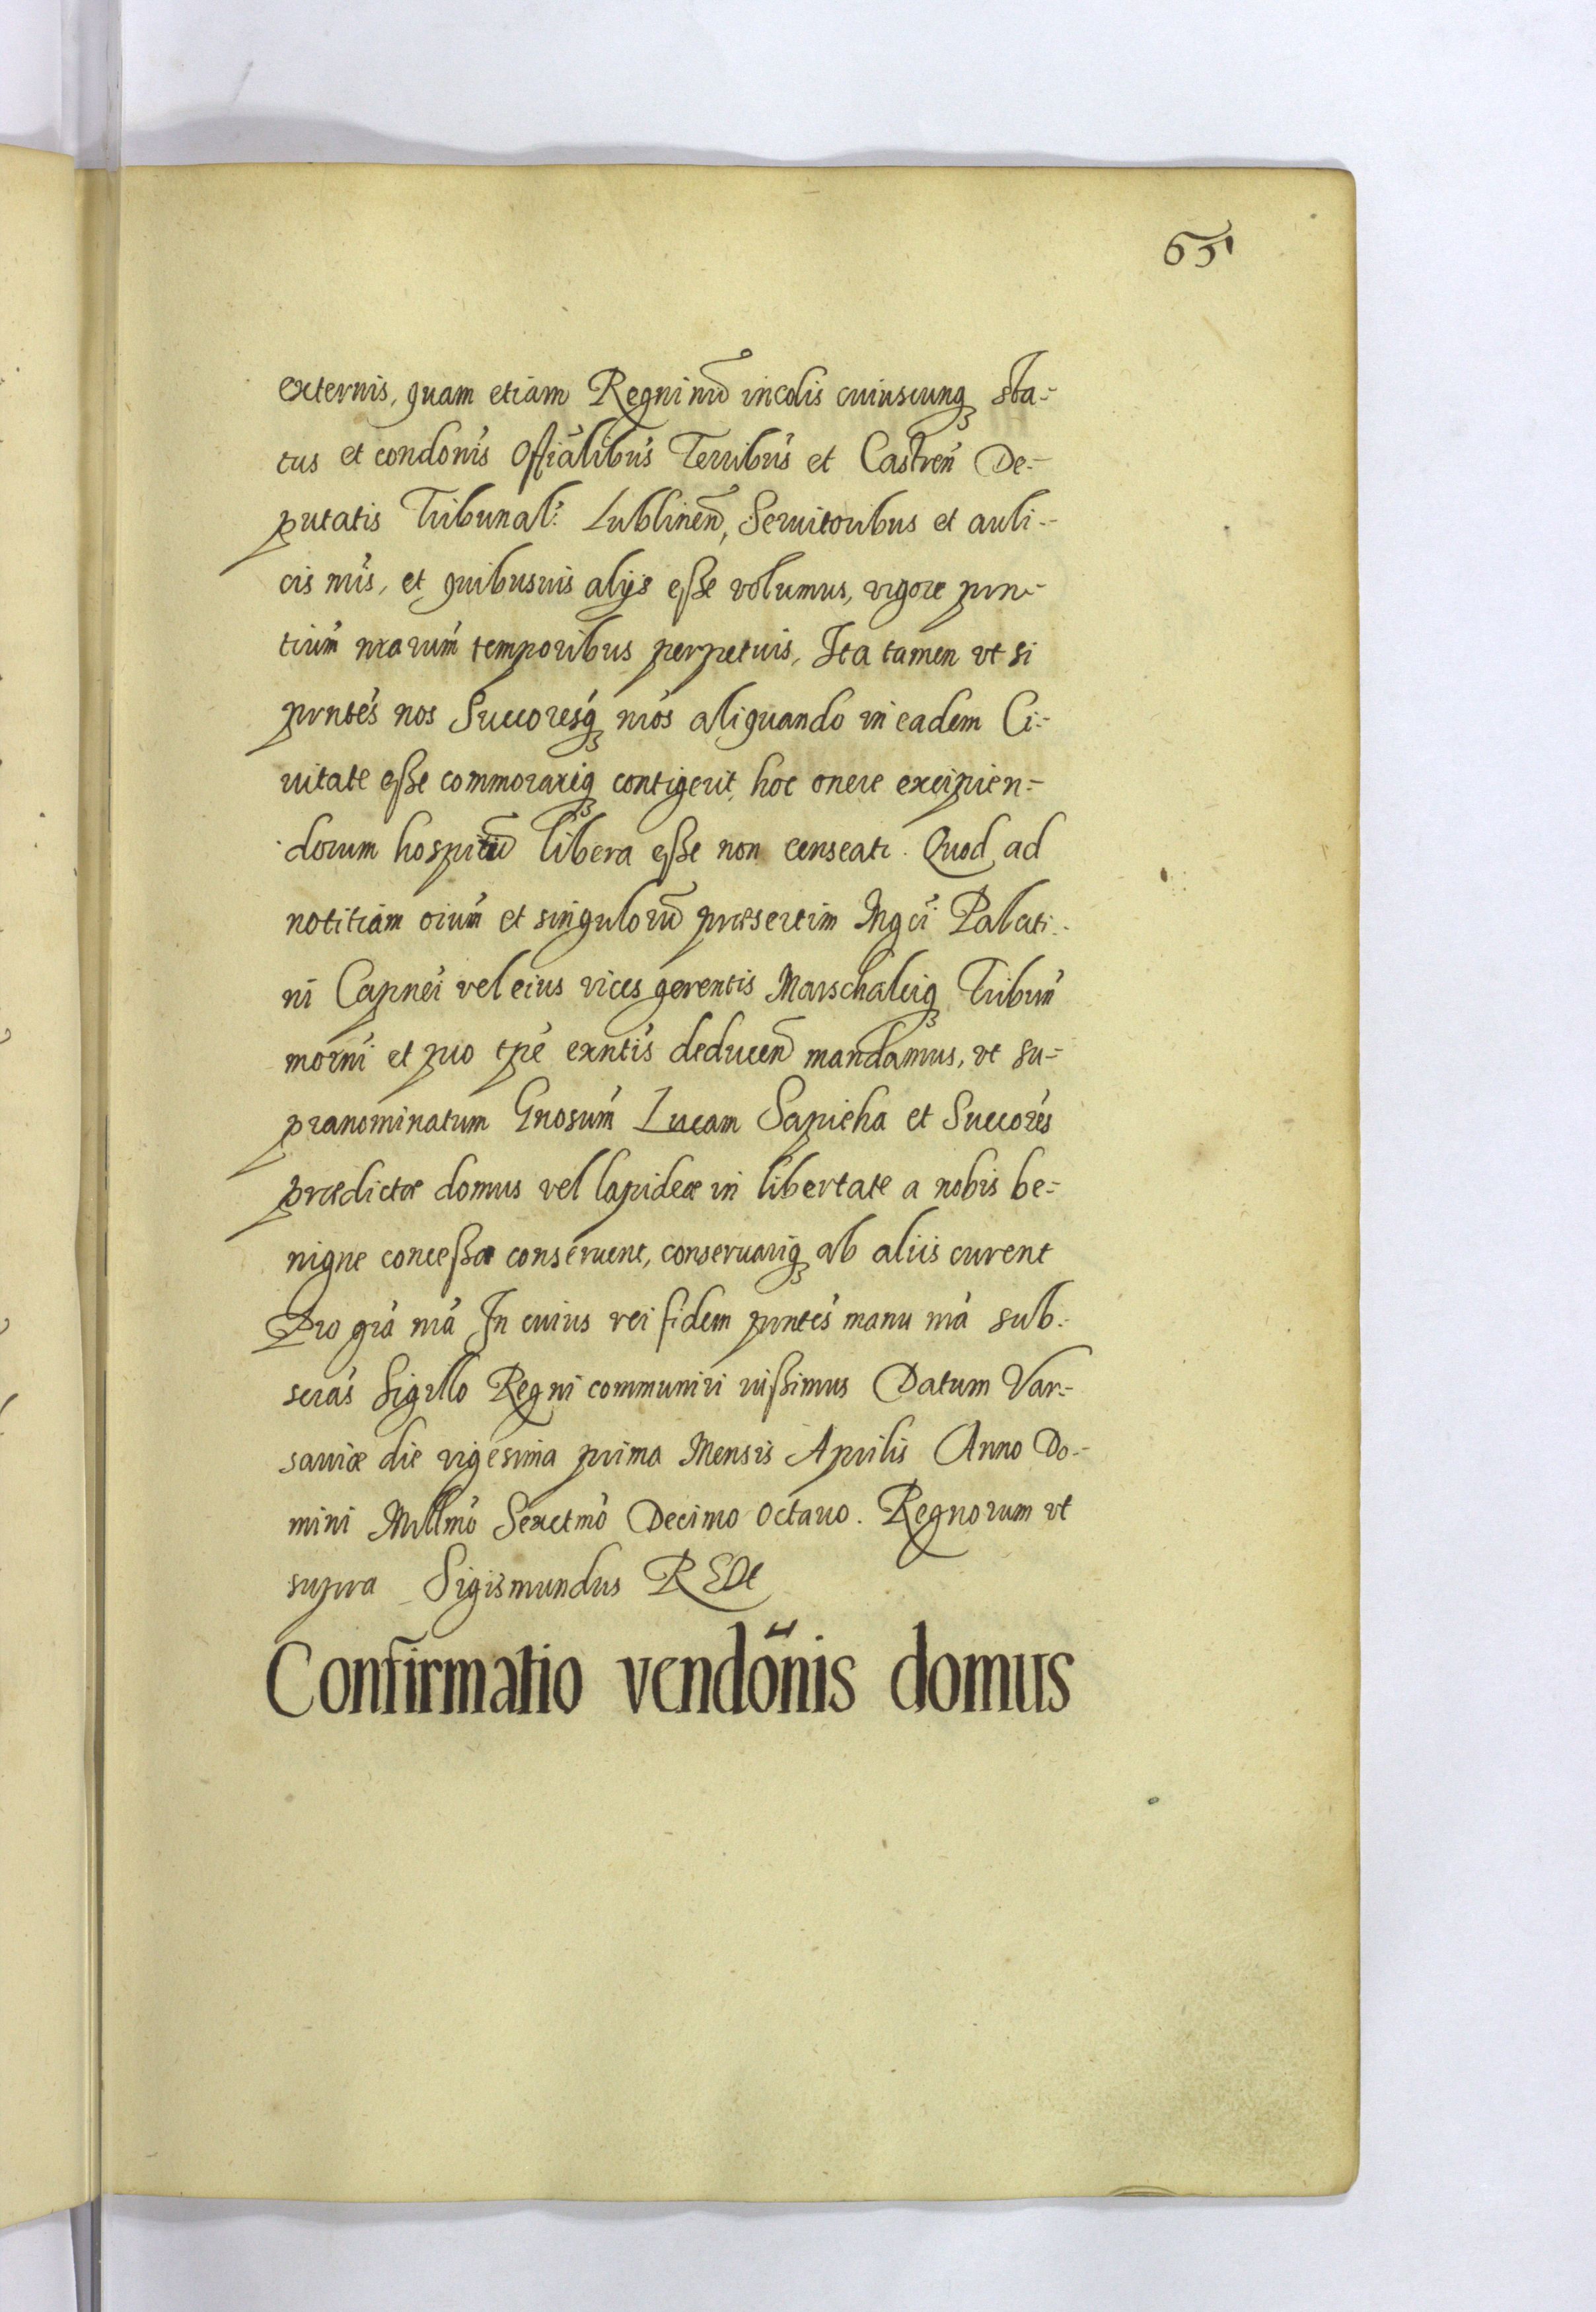 65
externis, quam etiam Regni nrĩ incolis cuiuscunq sta-
tus et condonis Offialibus Terribus et Castren De-
putatis Tribunal: Lublinen, Seruitoribus et auli-
cis nris, et quibusuis alijs eße volumus, vigore prn-
tium nrarum temporibus perpetuis, Ita tamen vt si
prntes nos Succoresq nros aliquando in eadem Ci-
uitate eße commorariq contigerit, hoc onere excipien-
dorum hospitũ libera eße non censeatr. Quod ad
notitiam oium et singulorũ præsertim Mgci Palati-
ni Capnei vel eius vices gerentis Marschalciq Tribun
moderni et pro tpe exntis deducen mandamus, vt su-
pranominatum Gnosum Lucam Sapieha et Succores
prædictæ domus vel lapideæ in libertate a nobis be-
nigne conceßa conseruent, conseruariq ab aliis curent
Pro gra nra In cuius rei fidem prntes manu nra sub-
scras Sigillo Regni communiri iußimus Datum Var-
sauiæ die vigesima prima Mensis Aprilis Anno Do-
mini Millmo Sexctmo Decimo Octauo. Regnorum vt
supra Sigismundus REX
Confirmatio vendõnis domus